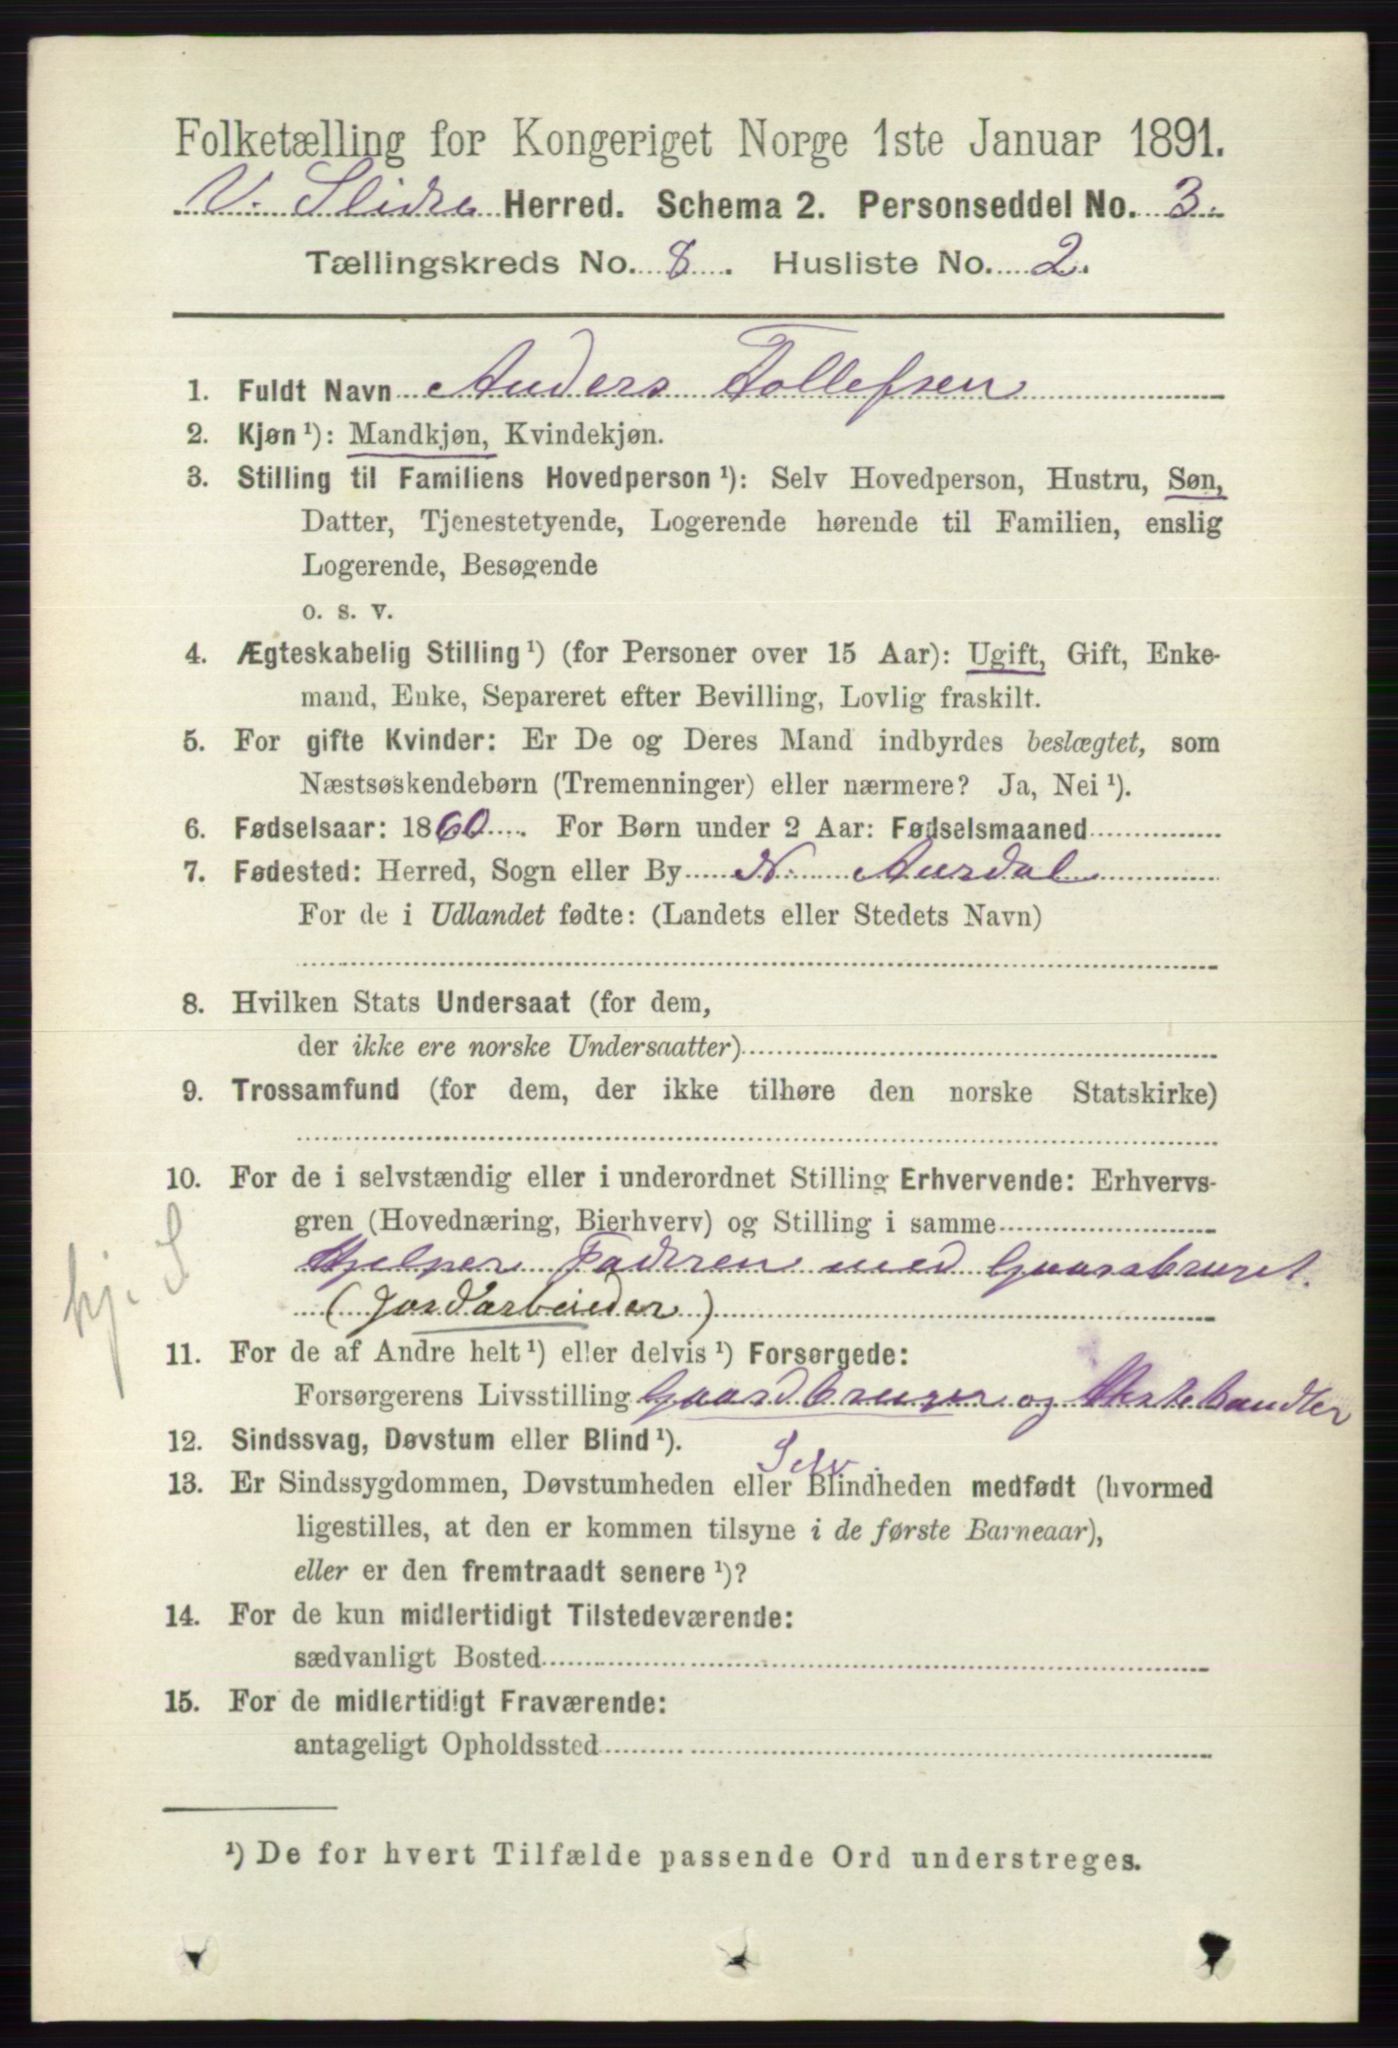 Folketælling for Kongeriget Norge 1ste Januar 1891.
V. Slidre Herred. Schema 2. Personseddel No. 3.
Tællingskreds No. 8. Husliste No. 2.
1. Fuldt Navn Anders Tollefsen
2. Kjøn ¹): Mandkjøn, Kvindekjøn.
3. Stilling til Familiens Hovedperson ¹): Selv Hovedperson, Hustru, Søn,
Datter, Tjenestetyende, Logerende hørende til Familien, enslig
Logerende, Besøgende
o. s. v.
4. Ægteskabelig Stilling ¹) (for Personer over 15 Aar): Ugift, Gift, Enke-
mand, Enke, Separeret efter Bevilling, Lovlig fraskilt.
5. For gifte Kvinder: Er De og Deres Mand indbyrdes beslægtet, som
Næstsøskendebørn (Tremenninger) eller nærmere? Ja, Nei ¹).
6. Fødselsaar: 1860. For Børn under 2 Aar: Fødselsmaaned
7. Fødested: Herred, Sogn eller By N. Aurdal
For de i Udlandet fødte: (Landets eller Stedets Navn)
8. Hvilken Stats Undersaat (for dem,
der ikke ere norske Undersaatter)
9. Trossamfund (for dem, der ikke tilhøre den norske Statskirke)
10. For de i selvstændig eller i underordnet Stilling Erhvervende: Erhvervs-
gren (Hovednæring, Bierhverv) og Stilling i samme
Hjelper Faderen med Gaardsbruget.
hj. S
(Jordarbeider)
11. For de af Andre helt ¹) eller delvis ¹) Forsørgede:
Forsørgerens Livsstilling Gaardbruger og Hestehandler
12. Sindssvag, Døvstum eller Blind ¹).
Selv.
13. Er Sindssygdommen, Døvstumheden eller Blindheden medfødt (hvormed
ligestilles, at den er kommen tilsyne i de første Barneaar),
eller er den fremtraadt senere ¹)?
14. For de kun midlertidigt Tilstedeværende:
sædvanligt Bosted
15. For de midlertidigt Fraværende:
antageligt Opholdssted
¹) De for hvert Tilfælde passende Ord understreges.